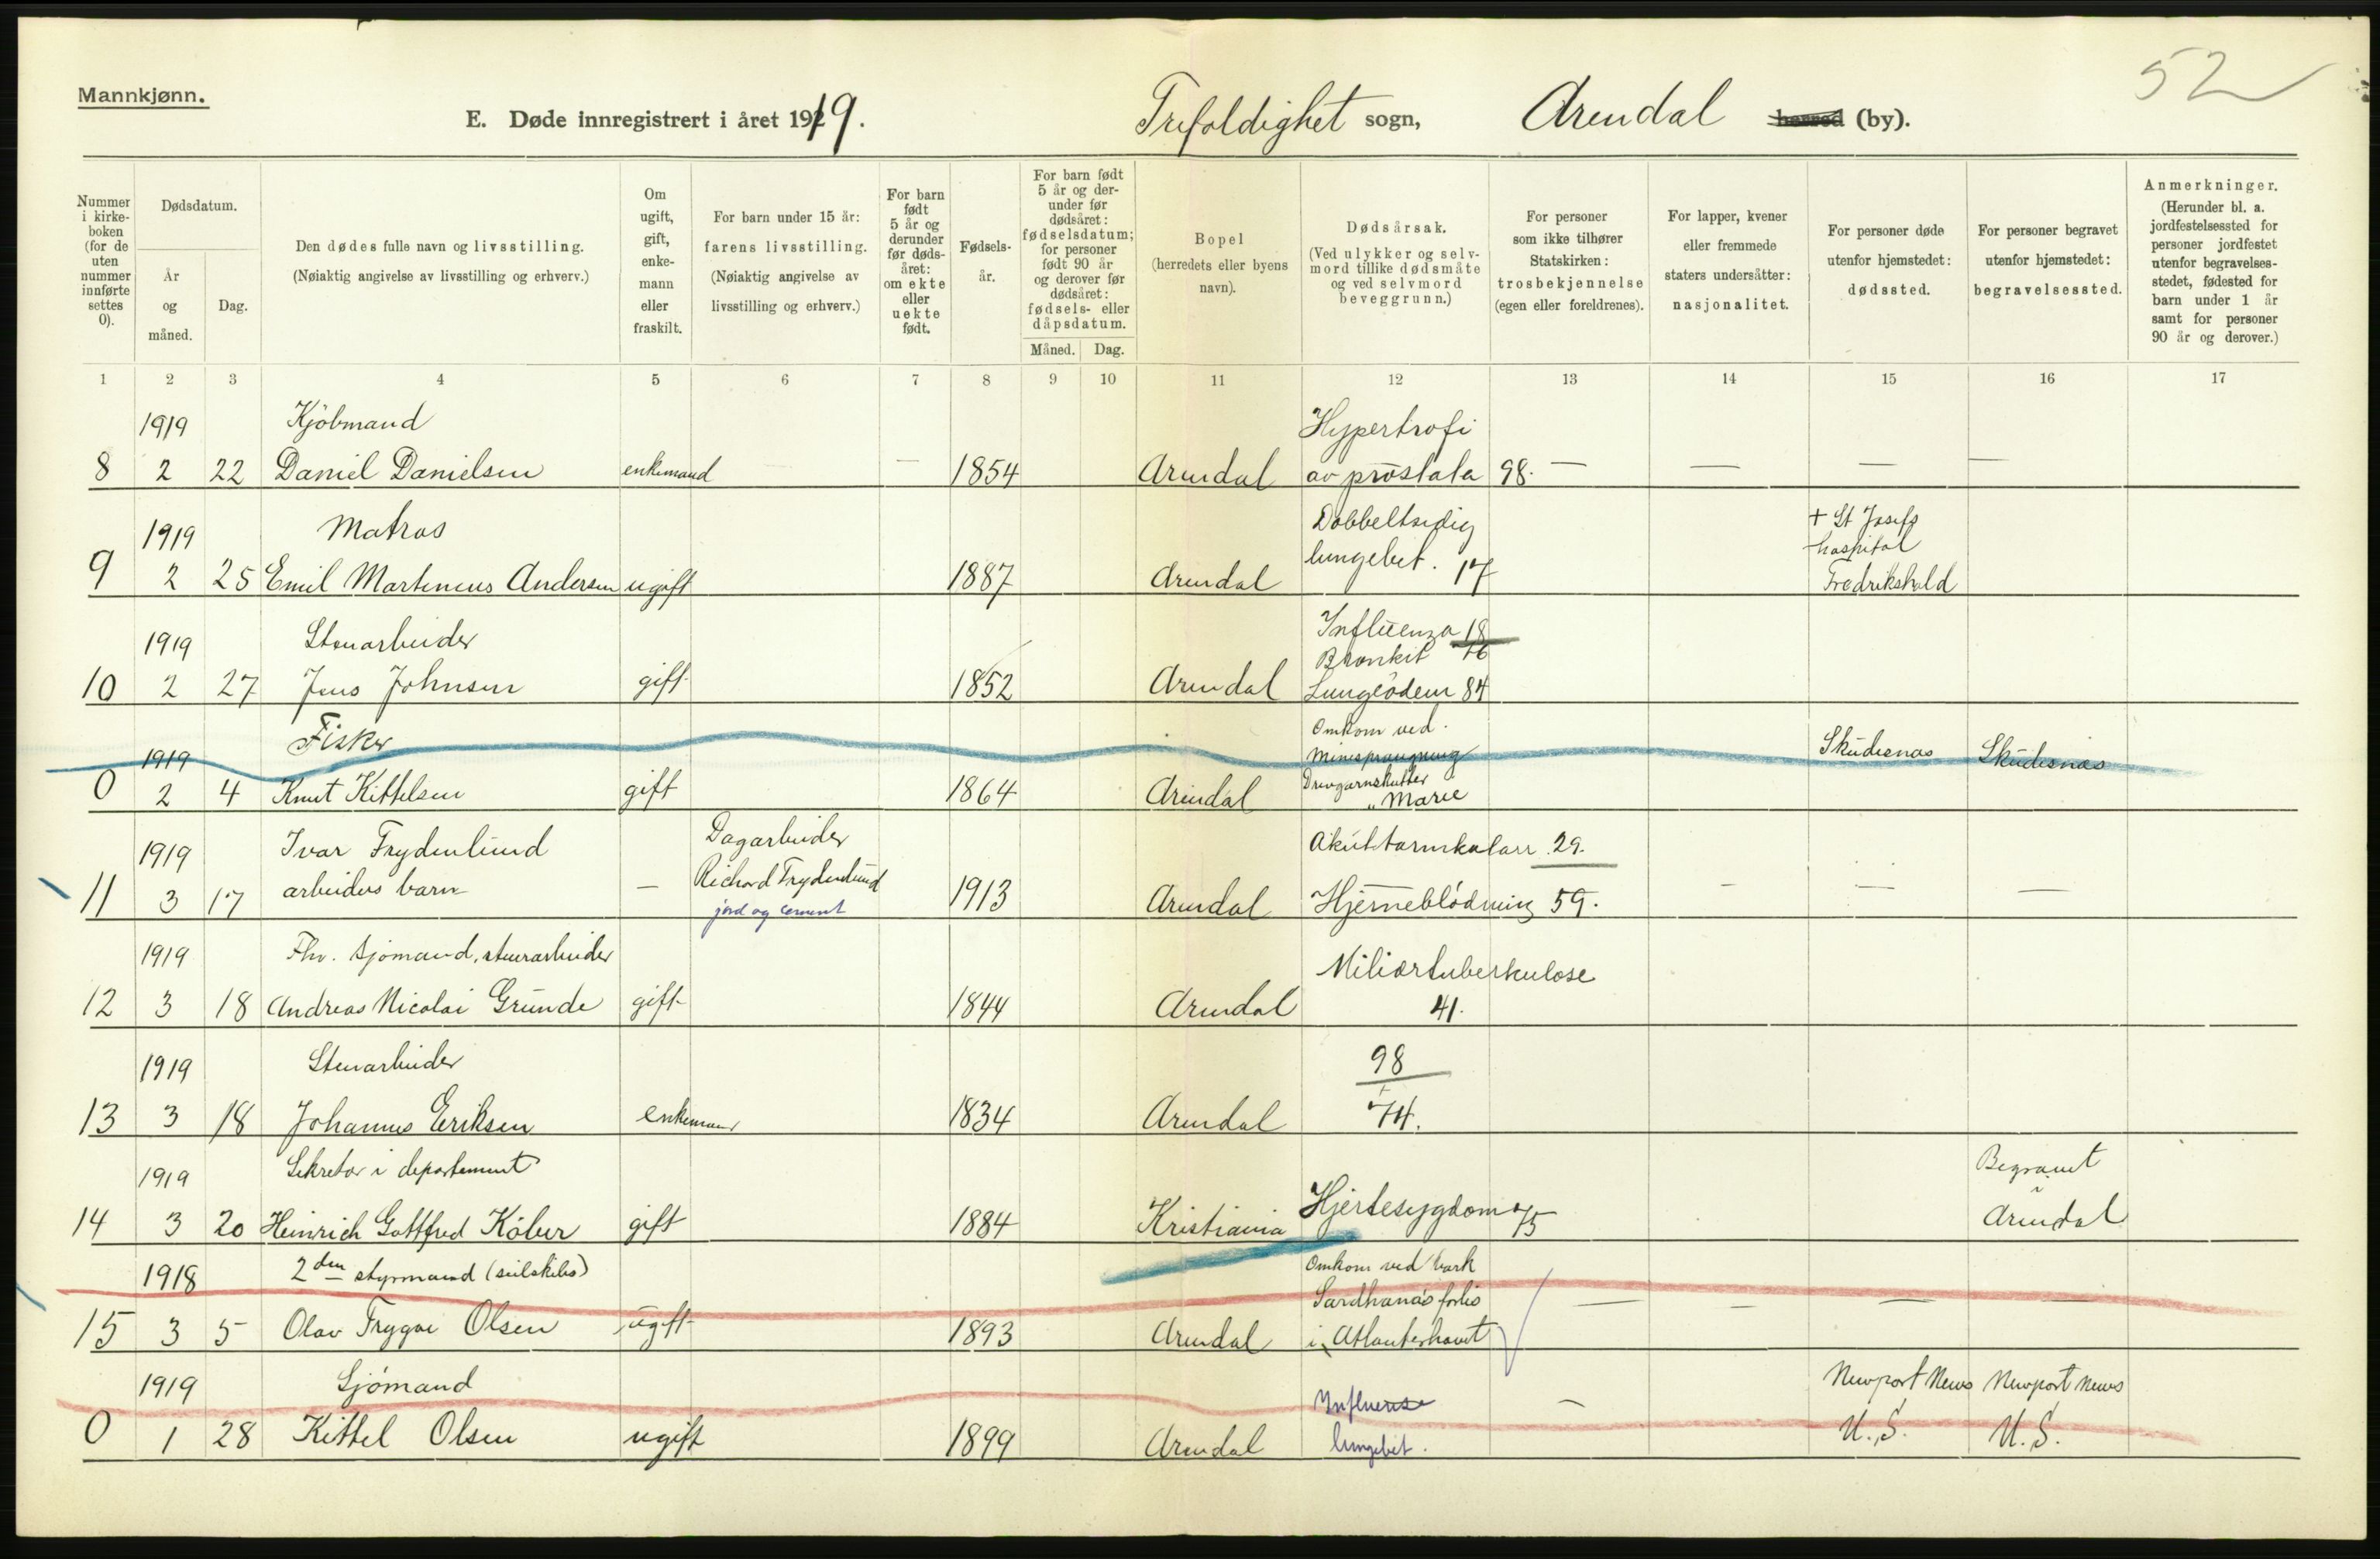 52
Mannkjønn.
E. Døde innregistrert i året 1919.
Trefoldighet sogn, Arendal herred (by).
Nummer i kirke-boken (for de uten nummer innførte settes 0).
Dødsdatum.
År og måned.
Dag.
Den dødes fulle navn og livsstilling.
(Nøiaktig angivelse av livsstilling og erhverv.)
Om ugift, gift, enke-mann eller fraskilt.
For barn under 15 år:
farens livsstilling.
(Nøiaktig angivelse av livsstilling og erhverv.)
For barn født 5 år og derunder før døds-året: om ekte eller uekte født.
Fødsels-år.
For barn født 5 år og der-under før dødsåret: fødselsdatum; for personer født 90 år og derover før dødsåret: fødsels- eller dåpsdatum.
Måned. Dag.
Bopel
(herredets eller byens navn).
Dødsårsak.
(Ved ulykker og selv-mord tillike dødsmåte og ved selvmord beveggrunn.)
For personer som ikke tilhører Statskirken: trosbekjennelse (egen eller foreldrenes).
For lapper, kvener eller fremmede staters undersåtter: nasjonalitet.
For personer døde utenfor hjemstedet: dødssted.
For personer begravet utenfor hjemstedet: begravelsessted.
Anmerkninger.
(Herunder bl. a. jordfestelsessted for personer jordfestet utenfor begravelses-stedet, fødested for barn under 1 år samt for personer 90 år og derover.)
1 2 3 4 5 6 7 8 9 10 11 12 13 14 15 16 17
1919 Kjöbmand Hypertrofi
8 2 22 Daniel Danielsen enkemand — — 1854 Arendal av prostata 98. — — — —
1919 Matros Dobbeltsidig + St Josefs
lungebet. 17 hospital
9 2 25 Emil Martineus Andersen ugift 1887 Arendal Fredrikshald
1919 Stenarbeider Influenza 18
Bronkit 76
10 2 27 Jens Johnsen gift 1852 Arendal Lungeödem 84
Fisker Omkom ved
1919 minesprængning Skudesnæs Skudesnæs
Drivgarnskutter
0 2 4 Knut Kittelsen gift 1864 Arendal "Marie
1919 Ivar Frydenlund Dagarbeider Akut tarmkatarr 29.
11 3 17 arbeiders barn — Richard Frydenlund 1913 Arendal Hjerneblödning 59. — — —
jord og cement
1919 Fhv. sjömand, stenarbeider Miliærtuberkulose
12 3 18 Andreas Nicolai Grunde gift 1844 Arendal 41.
1919 Stenarbeider 98
13 3 18 Johannes Eriksen enkemand 1834 Arendal 74.
1919 Sekretær i departement Begravet
14 3 20 Heinrich Gottfred Köber gift 1884 Kristiania Hjertesygdom 75 Arendal
1918 2den styrmand (seilskibs) Omkom ved bark
Sardhanas forlis — — — —
15 3 5 Olav Trygve Olsen ugift 1893 Arendal i Atlanterhavet
1919 Sjömand Newport News Newport News
Influensa — U.S. U.S.
0 1 28 Kittel Olsen ugift 1899 Arendal lungebet.